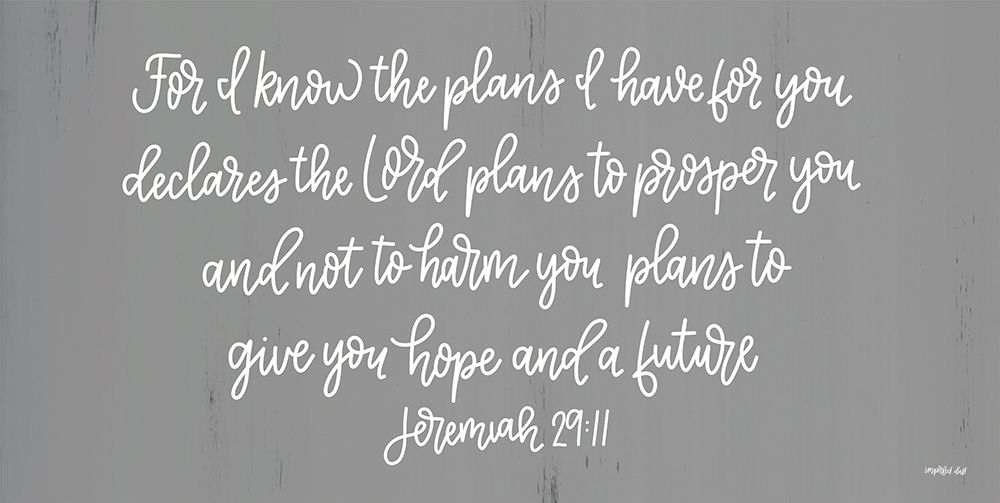 For I know the plans I have for you
declares the Lord plans to prosper you
and not to harm you plans to
give you hope and a future
Jeremiah 29:11
imperfect dust